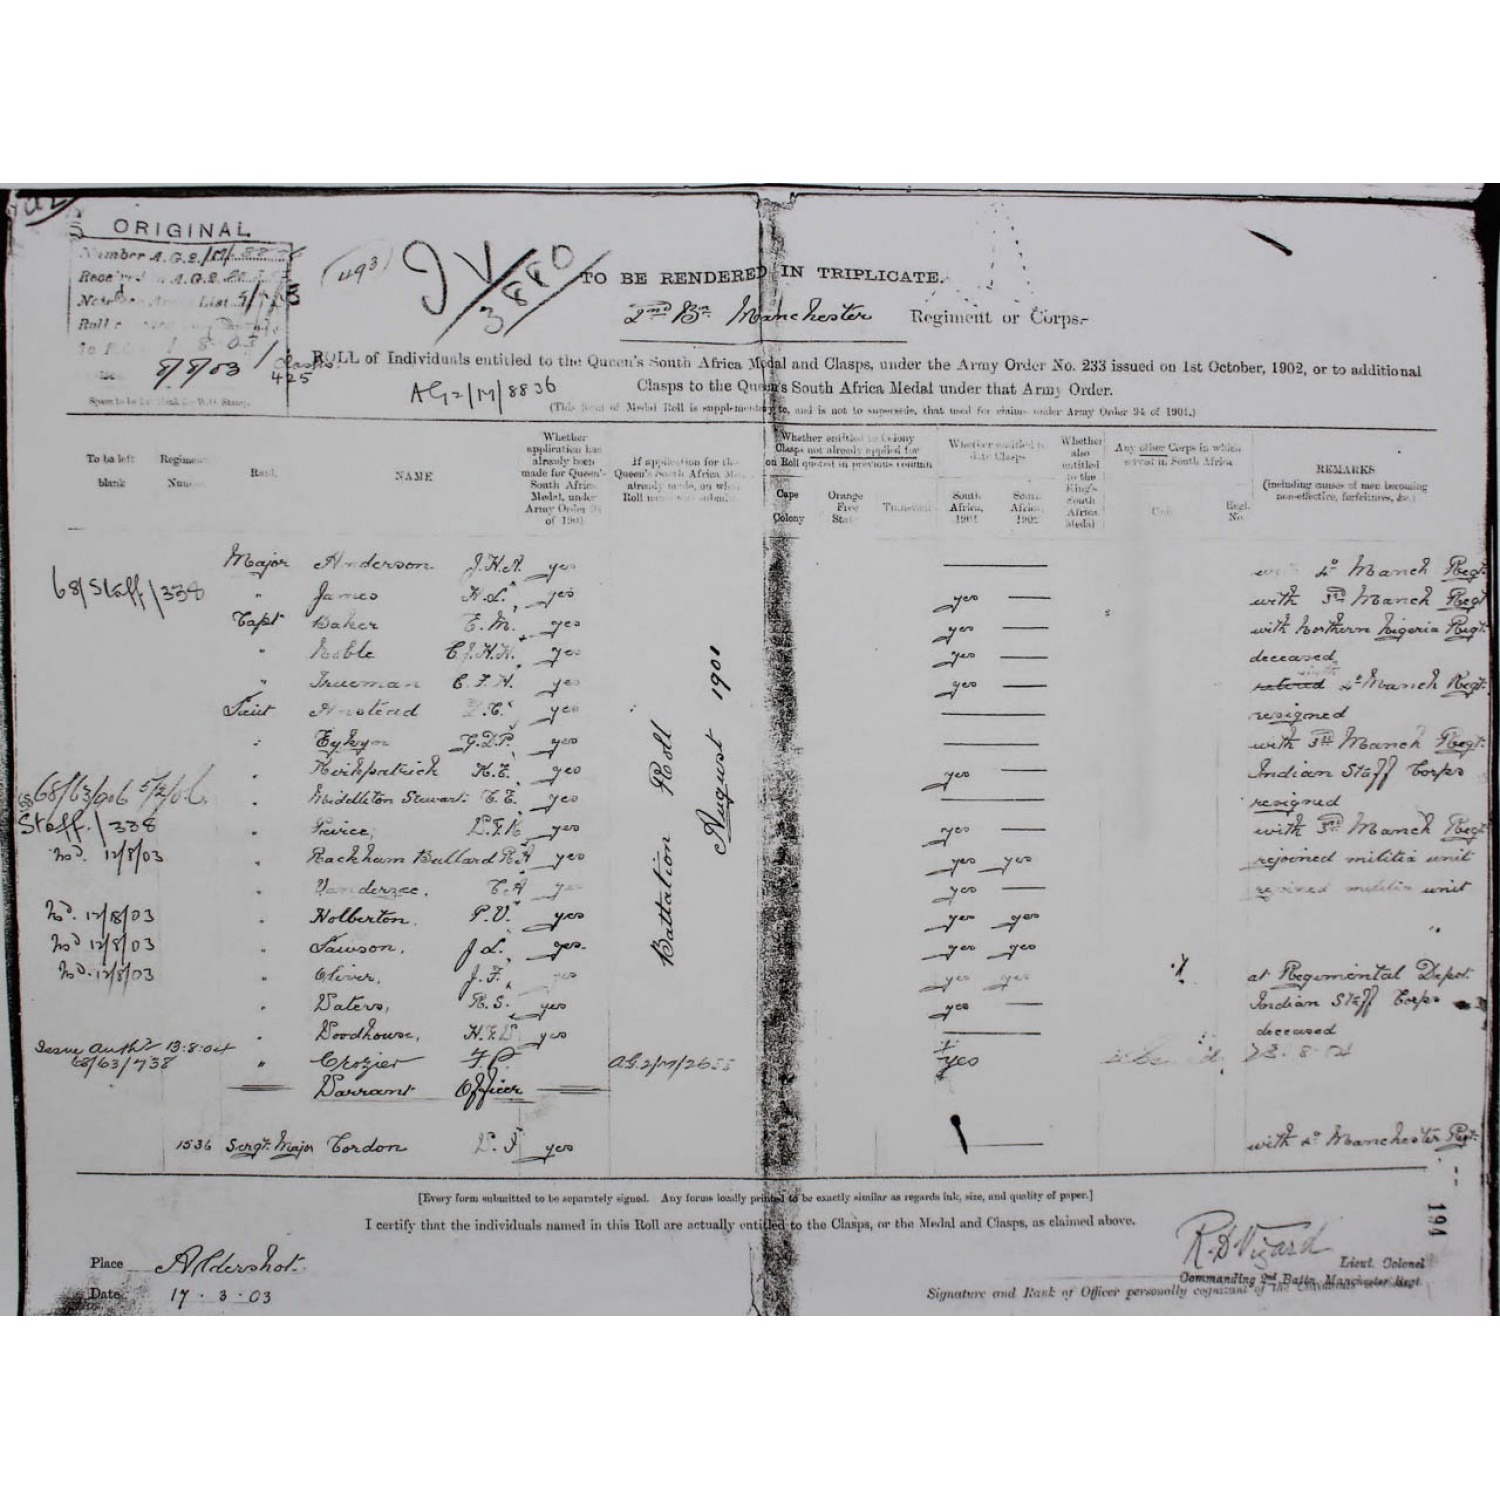 ORIGINAL
Number A.G.2./M/
A.G.2.
List
8/8/03 / Clasps 425
(493)
IV/3880
TO BE RENDERED IN TRIPLICATE.
2nd Bn. Manchester Regiment or Corps.-
ROLL of Individuals entitled to the Queen's South Africa Medal and Clasps, under the Army Order No. 233 issued on 1st October, 1902, or to additional
AG2/M/8836 Clasps to the Queen's South Africa Medal under that Army Order.
(This form of Medal Roll is supplementary to, and is not to supersede, that used for claims under Army Order 94 of 1901.)
To be left blank
Regimental
Rank
NAME
Whether application has already been made for Queen's South Africa Medal, under Army Order 94 of 1901
If application for the Queen's South Africa Medal already made, on what Roll
Whether entitled to Colony Clasps not already applied for on Roll quoted in previous column
Cape Colony
Orange Free State
Transvaal
Whether entitled to date Clasps
South Africa, 1901
South Africa, 1902
Whether also entitled to the King's South Africa Medal
Any other Corps in which served in South Africa
Corps
Regtl. No.
REMARKS
(including causes of men becoming non-effective, forfeitures, &c.)
Major Anderson J.H.A. yes — 4th Manch Regt.
68/Staff/338 " James H.L. yes yes — with 3rd Manch Regt
Capt Baker E.M. yes yes — with Northern Nigeria Regt.
" Noble C.J.H.H. yes yes — deceased
" Trueman C.F.H. yes yes — retired with 4th Manch Regt.
Lieut Anstead yes — resigned
" Eykyn G.D.P. yes — with 3rd Manch Regt.
" Kirkpatrick H.E. yes yes — Indian Staff Corps
68/63/906 5/2/06 " Middleton Stewart yes — resigned
Staff/338 " Peirce, yes yes — with 3rd Manch Regt
Isd. 12/8/03 " Rackham Bullard R.A yes yes yes rejoined militia unit
" Vanderzee. C.A yes yes — rejoined militia unit
Isd. 12/8/03 " Holberton. P.V. yes yes yes "
Isd 12/8/03 " Lawson. J.L. yes. yes yes
Isd. 12/8/03 " Oliver. J.F. yes yes yes at Regimental Depot.
" Waters, R.S. yes yes — Indian Staff Corps
" Woodhouse, yes — deceased
Issue Auth 13.8.04
68/63/738 " Crozier F.P. AG.2/M/2655 yes 23.8.04
Warrant Officer
1536 Sergt. Major Cordon yes — with 4th Manchester Regt.
Battalion Roll
August 1901
[Every form submitted to be separately signed. Any forms locally printed to be exactly similar as regards ink, size, and quality of paper.]
I certify that the individuals named in this Roll are actually entitled to the Clasps, or the Medal and Clasps, as claimed above.
194
Place Aldershot.
R.D. Vizard
Lieut. Colonel
Commanding 2nd Battn. Manchester Regt
Date 17.3.03
Signature and Rank of Officer personally cognizant of the